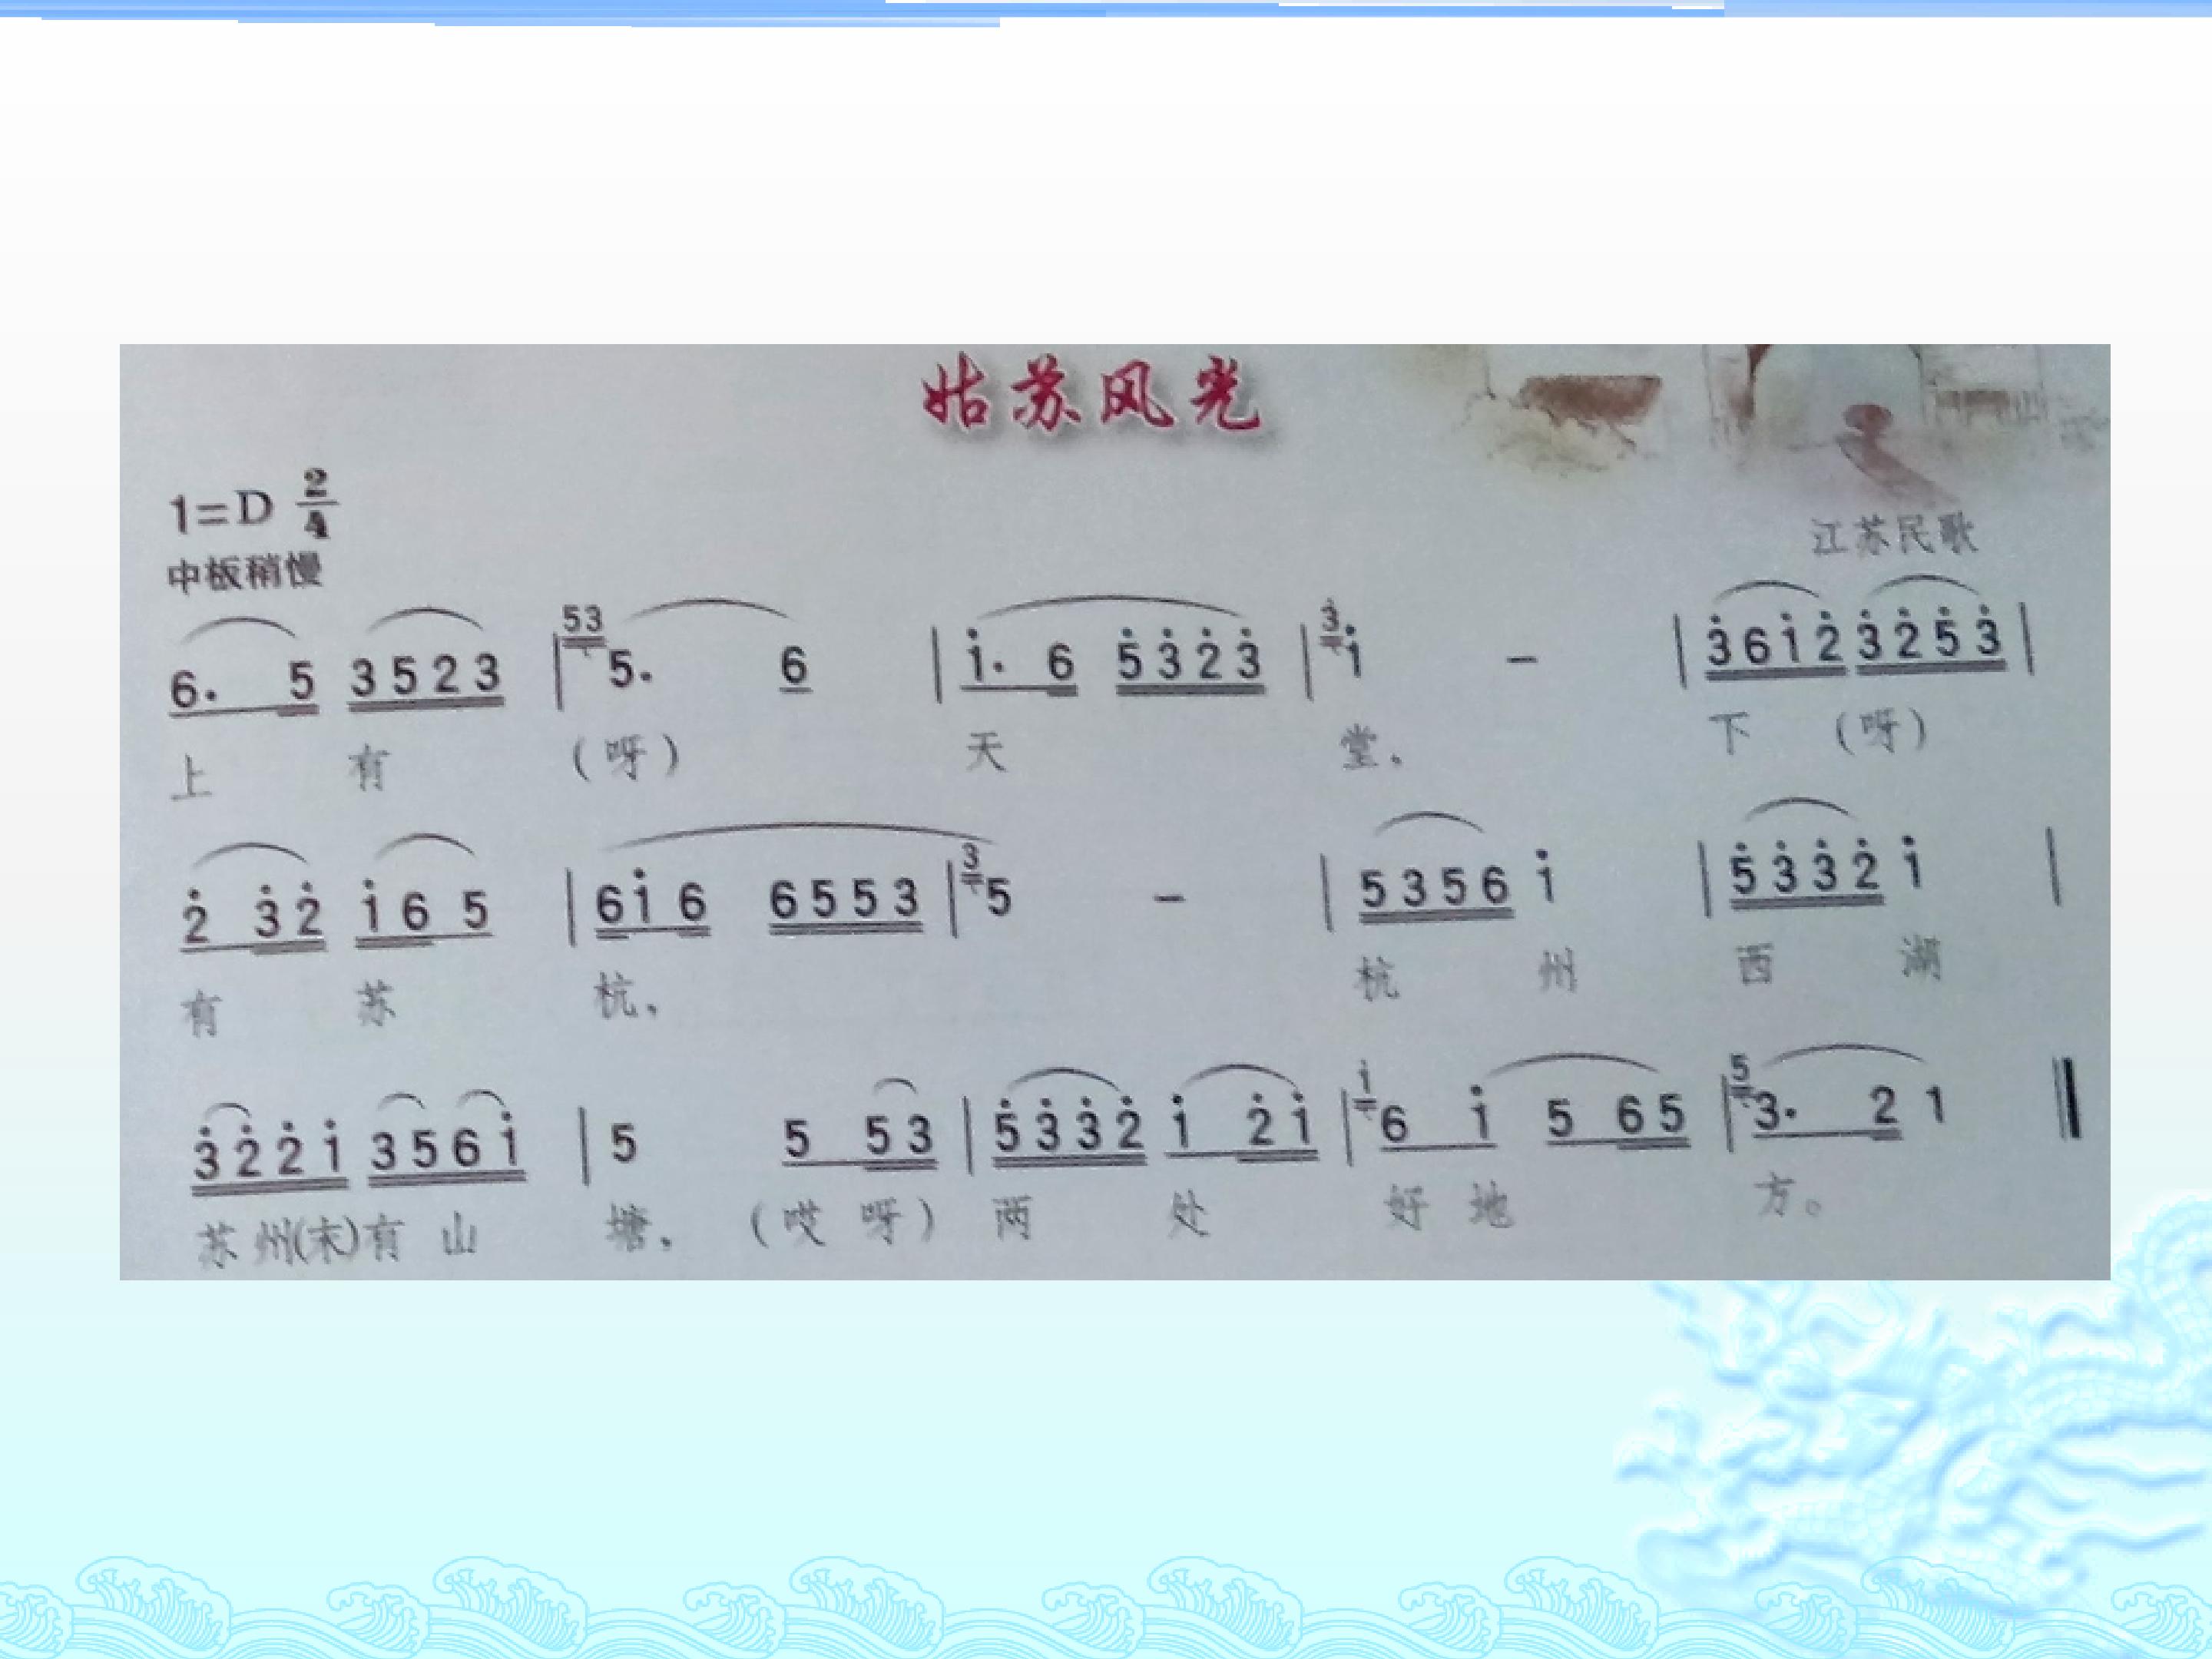 姑苏风光
1=D 2/4
江苏民歌
中板稍慢
6. 5 3523 | 53 5. 6 | i̇. 6 5̇3̇2̇3̇ | 3̇ i̇ - | 3̇6i̇2̇ 3̇2̇5̇3̇ |
上 有 (呀) 天 堂, 下 (呀)
2̇ 3̇2̇ i̇6 5 | 6i̇ 6 6553 | 3 5 - | 5356 i̇ | 5̇3̇3̇2̇ i̇ |
有 苏 杭, 杭 州 西 湖
3̇2̇2̇i̇ 356i̇ | 5 5 53 | 5̇3̇3̇2̇ i̇ 2̇i̇ | i̇ 6 i̇ 5 65 | 5 3. 2 1 ‖
苏 州(末)有 山 塘, (哎 呀) 两 处 好 地 方。